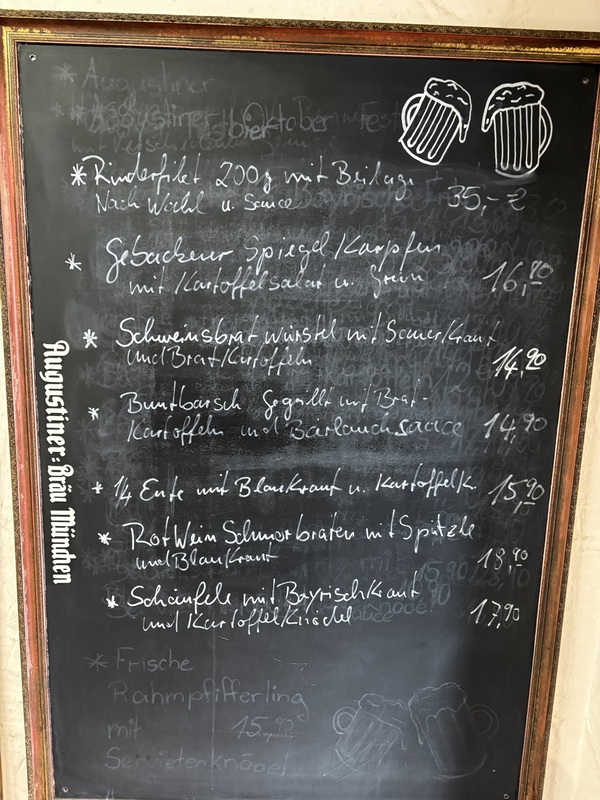 * Augustiner
* Augustiner Oktober Fest
bier
* Rinderfilet 200g mit Beilage
Nach Wahl u. Sauce 35,- €
* Gebackener Spiegel Karpfen
mit Kartoffelsalat u. Grün 16,90
* Schweinsbratwürstel mit SauerKraut
und BratKartoffeln 14,90
* Buntbarsch Gegrillt mit Brat-
Kartoffeln und Bärlauchsauce 14,90
* 1/4 Ente mit BlauKraut u. KartoffelK. 15,90
* RotWein Schmorbraten mit Spätzle
und BlauKraut 18,90
* Schäufele mit BayrischKraut
und KartoffelKnödel 17,90
* Frische
Rahmpfifferling
mit 15,90
Servietenknödel
Augustiner-Bräu München